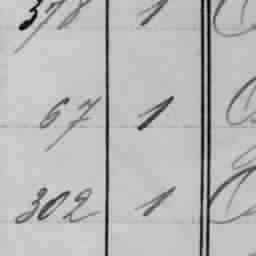 378 1
67 1
302 1